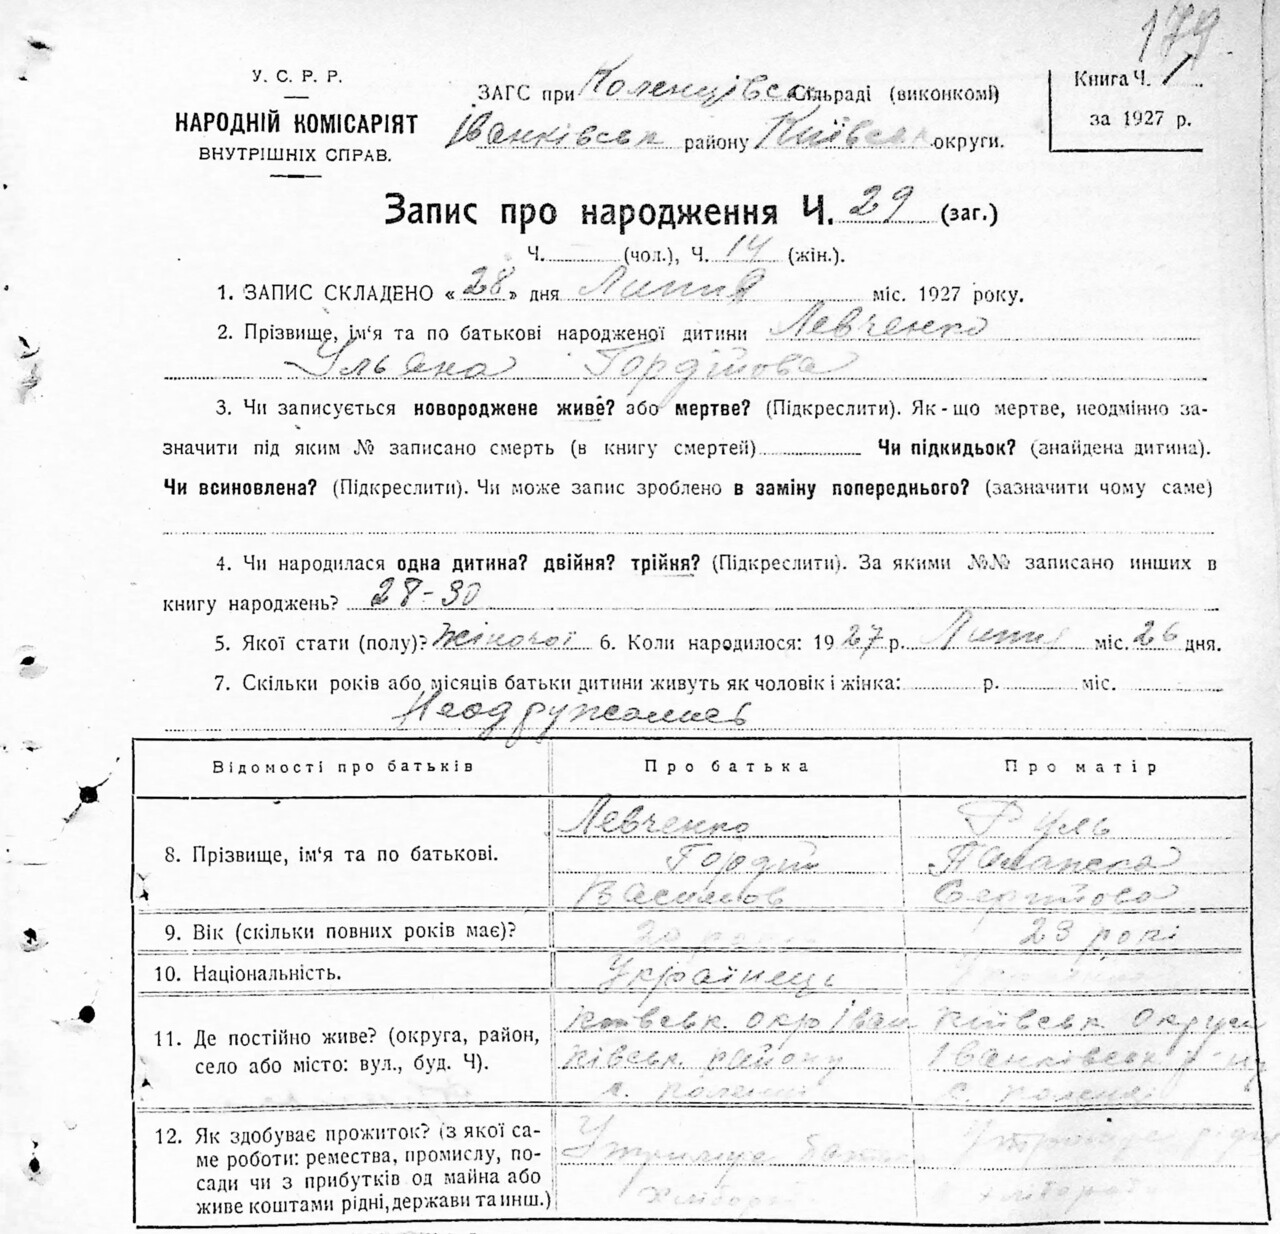 179
У. С. Р. Р.
НАРОДНІЙ КОМІСАРІЯТ
ВНУТРІШНІХ СПРАВ.
ЗАГС при Коленцівськ сільраді (виконкомі)
Іванківськ району Київськ округи.
Книга Ч. 1
за 1927 р.
Запис про народження Ч. 29 (заг.)
Ч. (чол.), Ч. 14 (жін.).
1. ЗАПИС СКЛАДЕНО «28» дня Липня міс. 1927 року.
2. Прізвище, ім'я та по батькові народженої дитини Левченко
Ульяна Гордійова
3. Чи записується новороджене живе? або мертве? (Підкреслити). Як-що мертве, неодмінно за-
значити під яким № записано смерть (в книгу смертей) Чи підкидьок? (знайдена дитина).
Чи всиновлена? (Підкреслити). Чи може запис зроблено в заміну попереднього? (зазначити чому саме)
4. Чи народилася одна дитина? двійня? трійня? (Підкреслити). За якими №№ записано инших в
книгу народжень? 28-30
5. Якої стати (полу)? Жіночої 6. Коли народилося: 1927 р. Липня міс. 26 дня.
7. Скільки років або місяців батьки дитини живуть як чоловік і жінка: р. міс.
Відомості про батьків Про батька Про матір
8. Прізвище, ім'я та по батькові.
Левченко Руль
Гордій
Васильов
9. Вік (скільки повних років має)? 23 рокі
10. Національність. Українець
11. Де постійно живе? (округа, район,
село або місто: вул., буд. Ч).
Київськ. окр Іван Київськ округи
ківськ району Іванківськ
с. с.
12. Як здобуває прожиток? (з якої са-
ме роботи: ремества, промислу, по-
сади чи з прибутків од майна або
живе коштами рідні, держави та инш.)